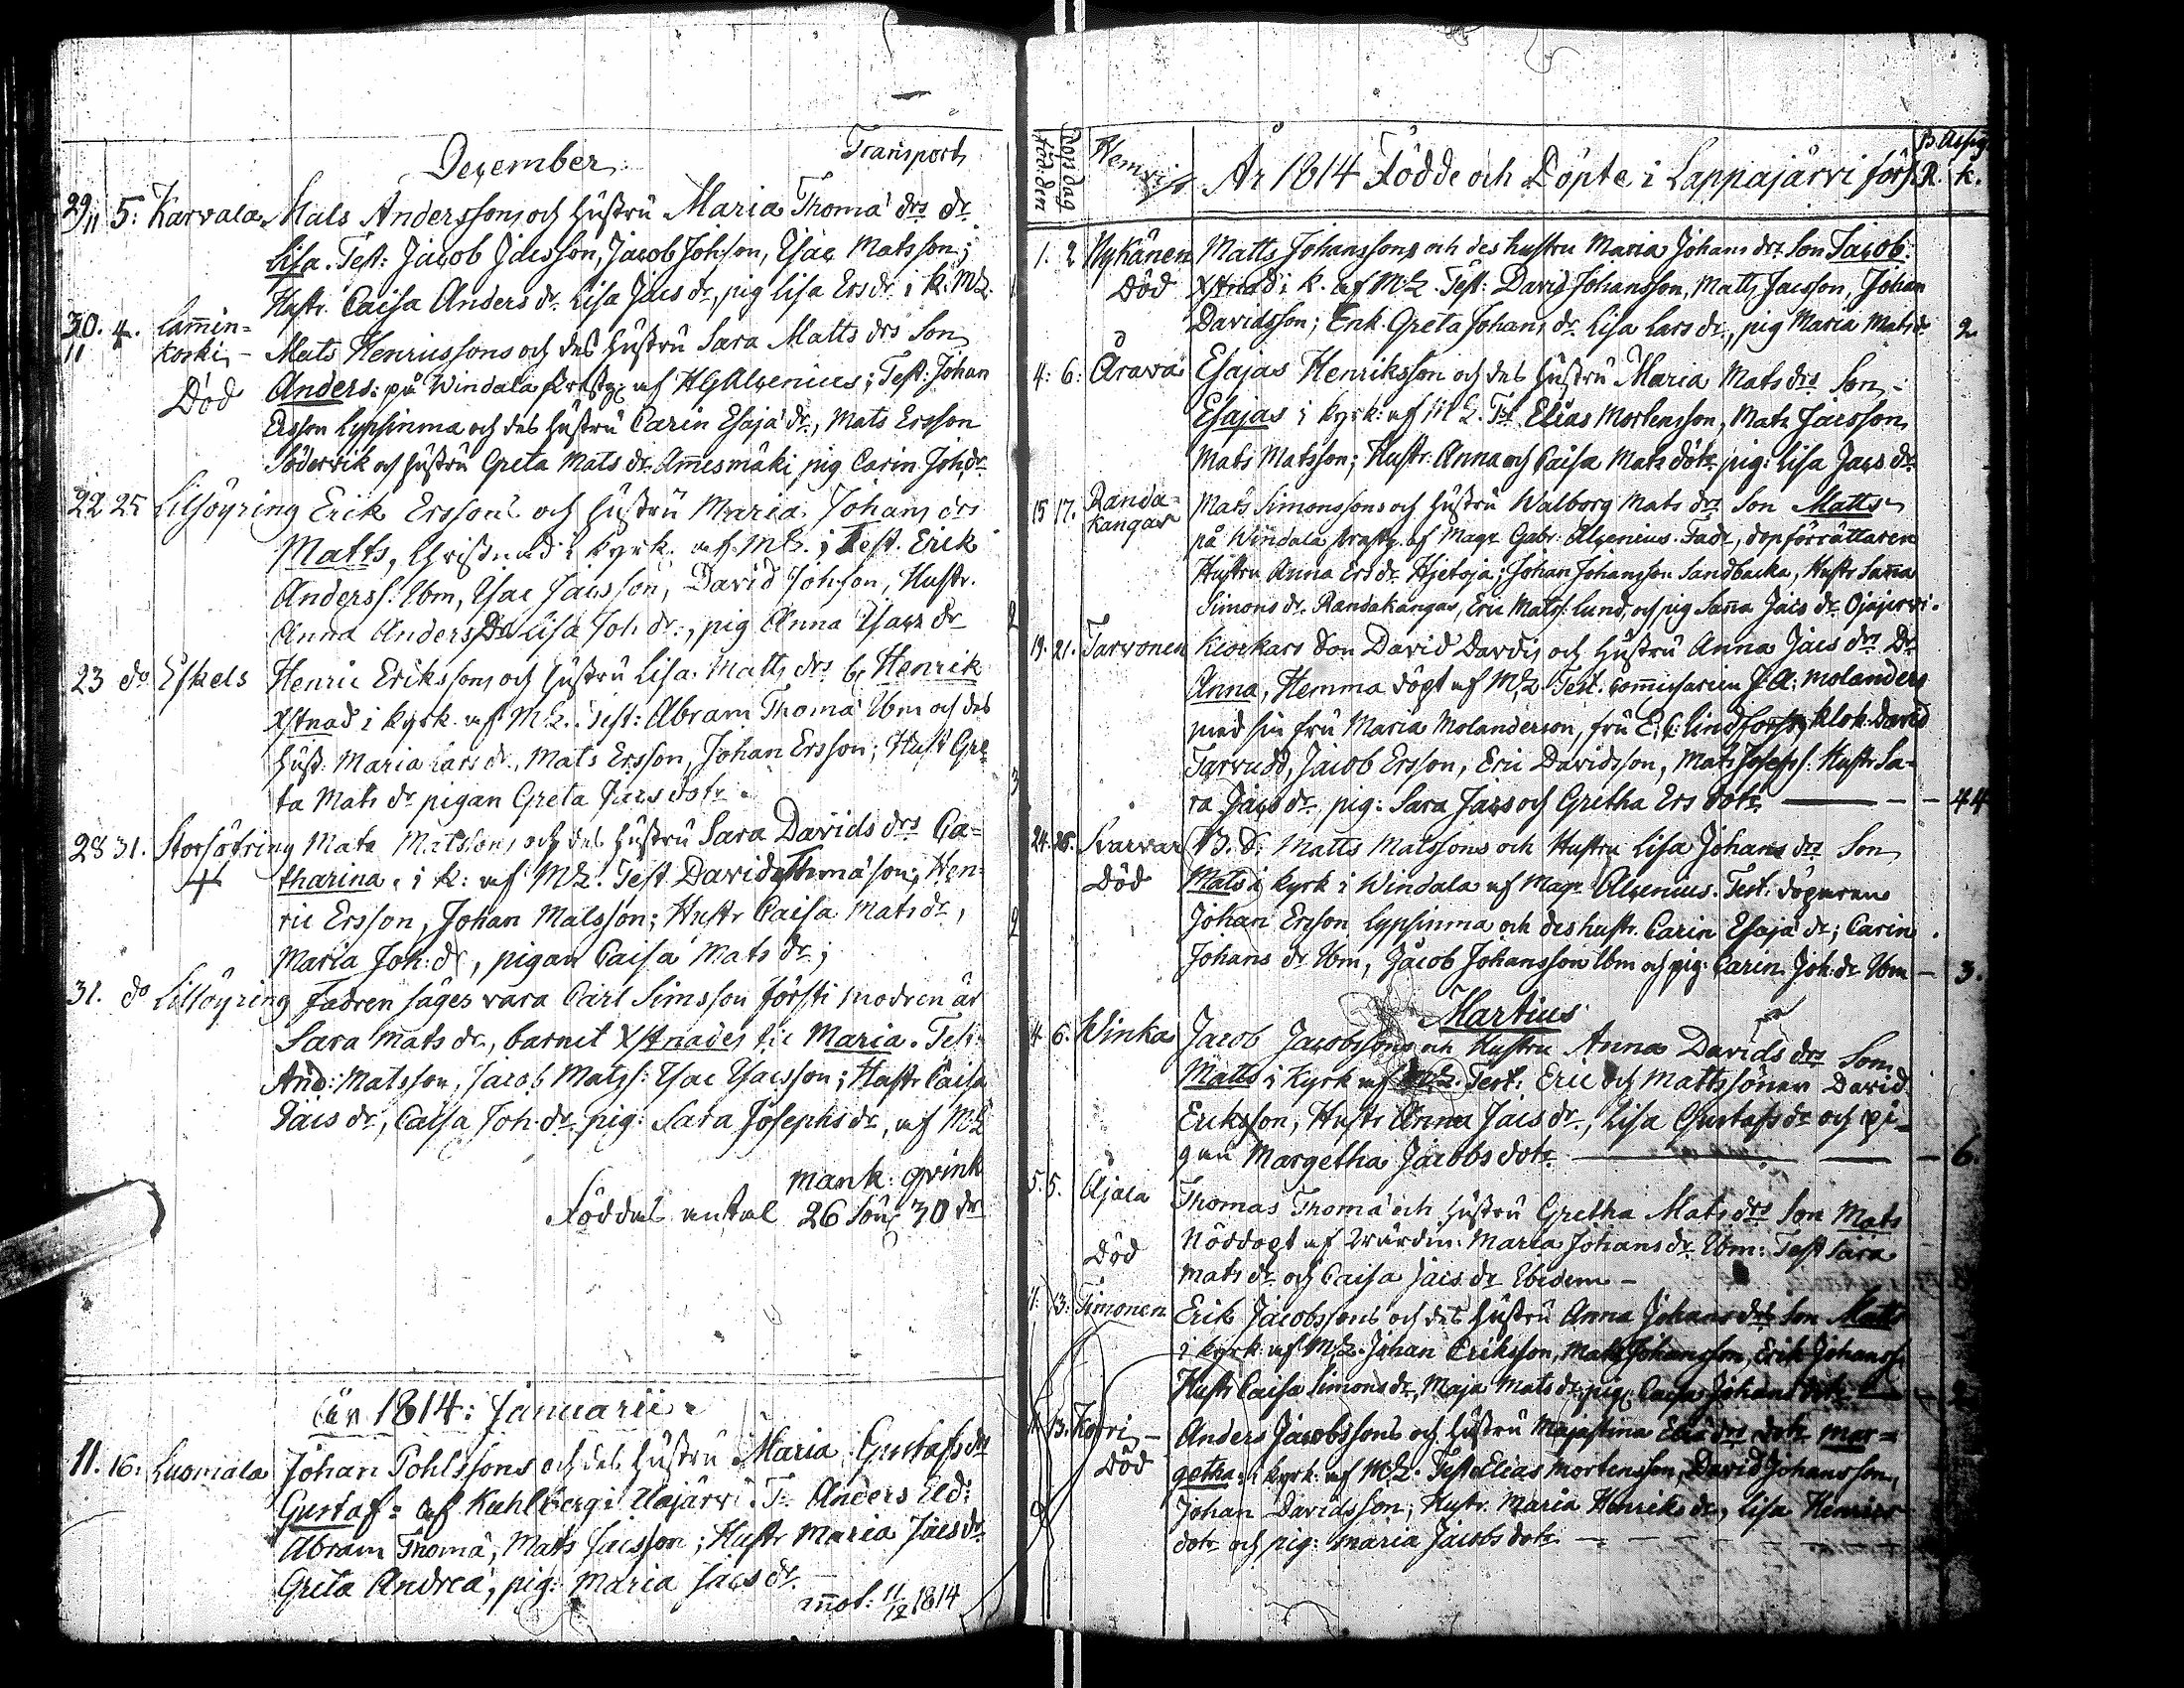 December Transport
29/11 5: Karvala Mats Anderssons och hustru Maria Thomä drs dr
Lisa. Test: Jacob Jacsson, Jacob Johsson, Esac Matsson;
Hustr. Caisa Anders dr Lisa Jacs dr, pig Lisa Ers dr i K. ML.
30/11 4. Lamin=
koski - Mats Henricssons och des hustru Sara Matts drs Son
Död Anders: på Windala af HGAlcenius; Test: Johan
Ersson Lypsinma och des hustru Carin Esajä dr, Mats Ersson
Södervik och hustru Greta Mats dr Ammesmäki pig Carin Joh. dr
22 25 Lillsöyring Erik Erssons och hustru Maria Johans drs
Matts, Christnad i kyrk. af ML. ; Test. Erik
Anderss. Ibm, Esac Jacsson, David Johsson, Hustr.
Anna Anders Dr Lisa Joh dr., pig Anna Esacs dr
23 do Eskels Henric Erikssons och hustru Lisa Matts drs G. Henrik
Xstnad i kyrk af ML. Test: Abram Thomä Ibm och des
hust. Maria Lars dr, Mats Ersson, Johan Ersson; Hust Gre
ta Mats dr pigan Greta Jacs dotr.
28 31. Storsöyring Mats Matssons och des hustru Sara Davids drs Ca=
+ tharina. i K: af ML. Test David Thomäson, Hen
ric Ersson, Johan Matsson; Hustr Caisa Mats dr,
Maria Joh: dr, pigan Caisa Mats dr;
31. do Lillsöyring Fadren säges vara Carl Simsson försti modren är
Sara Mats dr, barnet Xstnades til Maria. Test:
And: Matsson, Jacob Matss: Esac Esacsson; Hustr Caisa
Jacs dr, Caisa Joh. dr pig: Sara Josephs dr, af ML
mank: qvink
Föddas antal 26 Söner 30 dr
År 1814: Januarii
11. 16: Luomala Johan Pohlssons och des hustru Maria Gustafs drs
Gustaf = af Kahlberg i Alajärvi. T. Anders Eld:
Abram Thomä, Mats Jacsson; Hustr Maria Jacs dr
Greta Andreä, pig: Maria Jacs dr.
not: 11/12 1814
född den
Dops dag
Hemvist År 1814 Födde och Döpte i Lappajärvi förs. B. Assig.
R. k.
1. 2 Nykänen Matts Johanssons och des hustru Maria Johans drs Son Jacob:
Död Xstnad i K. af ML. Test: David Johansson, Matts Jacsson, Johan
Davidsson; Enk. Greta Johans dr Lisa Lars dr, pig Maria Mats dr 2
4: 6: Årava Esajas Henriksson och des hustru Maria Mats drs Son -
Esajas i kyrk: af ML. Tst Elias Mortensson, Mats Jacsson
Mats Matsson; Hustr. Anna och Caisa Mats dötr pig: Lisa Jacs dr
15 17. Randa=
kangas Mats Simonssons och hustru Walborg Mats drs Son Matts
på Windala af Magr Gabr: Alcenius. Fadr, dopförrättaren
Hustru Anna Ers dr Hjetoja; Johan Johansson Sandbacka, Hustr Sanna
Simons dr Randakangas, Eric Matss: Lund, och pig Sanna Jacs dr Ojajervi.
19. 21. Tarvonen Klockars Son David Davids och hustru Anna Jacs drs Dr
Anna, Hemma döpt af ML. Test. Commissarien J. A: Molanders
med sin fru Maria Molanderson, fru E: C: Lindforss, Klok. David
Tarvudd, Jacob Ersson, Eric Davidsson, Mats Josefss: Hustr Sa-
ra Jacs dr pig: Sara Jacs och Gretha Ers dotr - - 44
24. 26. Svarvar B. S. Matts Matssons och Hustru Lisa Johans drs Son
Död Mats i kyrk i Windala af Magr Alcenius. Test: döparen
Johan Ersson Lypsinma och des hustr. Carin Esajä dr; Carin
Johans dr Ibm, Jacob Johansson Ibm och pig: Carin Joh: dr Ibm - 3.
Martius
4 6. Winka Jacob Jacobssons och Hustru Anna Davids drs Son
Matts i Kyrk af ML. Test: Eric och Mattssöner David
Eriksson, Hustr Anna Jacs dr, Lisa Gustafs dr och pi-
gan Margetha Jacobs dotr - 6.
5. 5. Ajala Thomas Thomä och hustru Gretha Mats drs Son Mats
Död Nöddöpt af Wärdin: Maria Johans dr Ibm: Test Sara
Mats dr och Caisa Jacs dr Ibidem -
11. 13: Timonen Erik Jacobssons och des hustru Anna Johans drs Son Matts
i kyrk af ML. Johan Eriksson, Mats Johansson, Erik Johanss.
Hustr Caisa Simons dr, Maja Mats dr; pig: Caisa Johans dotr 2
11. 13. Korri - Anders Jacobssons och hustru Majastina Eliä drs dotr Mar=
Död getha i kyrk: af ML. Test: Elias Mortensson, David Johansson,
Johan Davidsson; Hustr. Maria Henriks dr, Lisa Henrics
dotr och pig: Maria Jacobs dotr